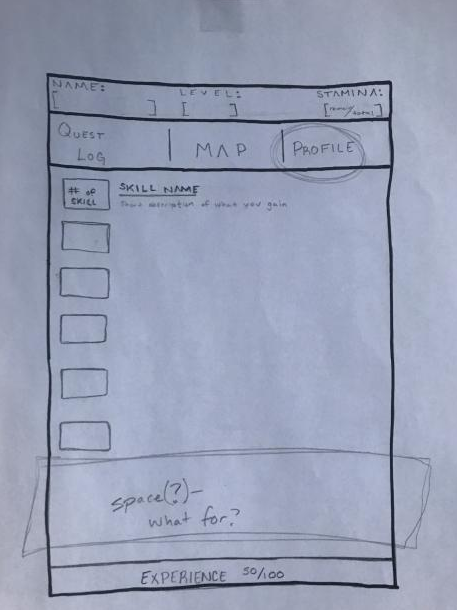 NAME: LEVEL: STAMINA:
[ ] [ ] [ /total]
QUEST LOG | MAP | PROFILE
# OF SKILL
SKILL NAME
Short description of what you gain
space(?)-
what for?
EXPERIENCE 50/100